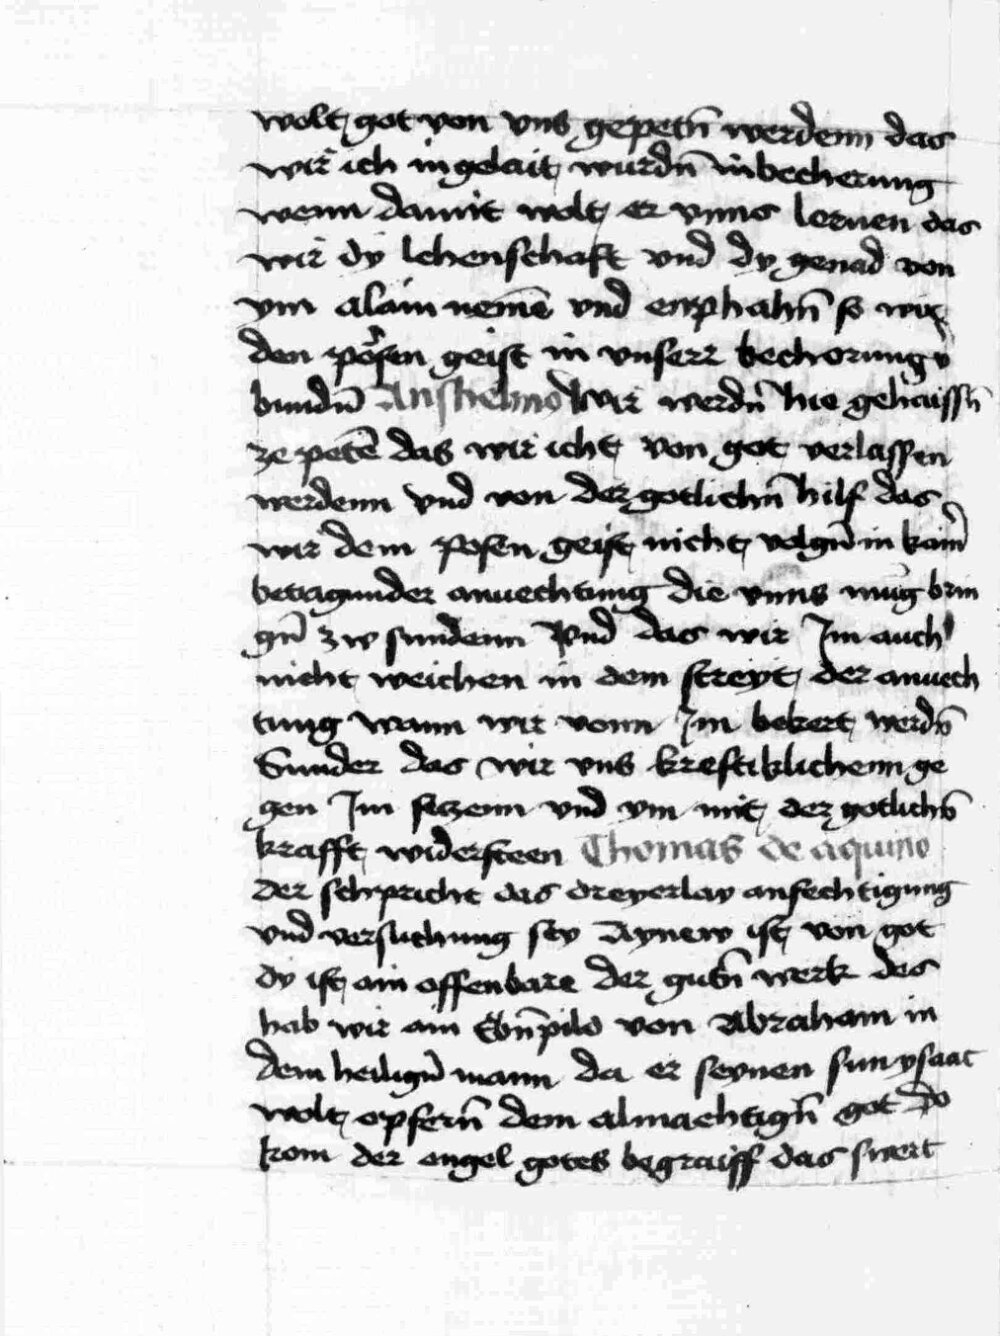 wolt got von vns gepetn̄ werdenn das
wir ich ingelait wurdn̄ in becherung
wenn damit wolt er vnns lernen das
wir dÿ lehenschaft vnd dy genad von
ym alain nemē vnd enphahn̄ so wir
den pösen geist in vnserr bechorung v̄
bundn̄ Anshelmo Wir werdn̄ hie gehaissn̄
ze petē das wir icht von got verlassen
werdenn vnd von der gotlichn̄ hilf das
wir dem posen geist nicht volgn̄ in kain̄
betragunder anuechtung die vnns mug brin
gn̄ zw sundenn Vnd das wir Im auch
nicht weichen in dem streyt der anuech
tung wann wir vonn Im bekert werdn̄
Sunder das wir vns kreftiklichenn ge
gen Im seczenn vnd ym mit der gotlichn̄
krafft widersteen Thomas de aquino
der schpricht das dreyerlay anfechtigung
vnd versuchung sey Aynew ist von got
dÿ ist ain offenbare der gutn̄ werk des
hab wir ain Ebn̄pild von Abraham in
dem heilign̄ mann da er seynen sun ysaac
wolt opfern̄ dem almachtign̄ got Do
kom der engel gotes begraiff das swert